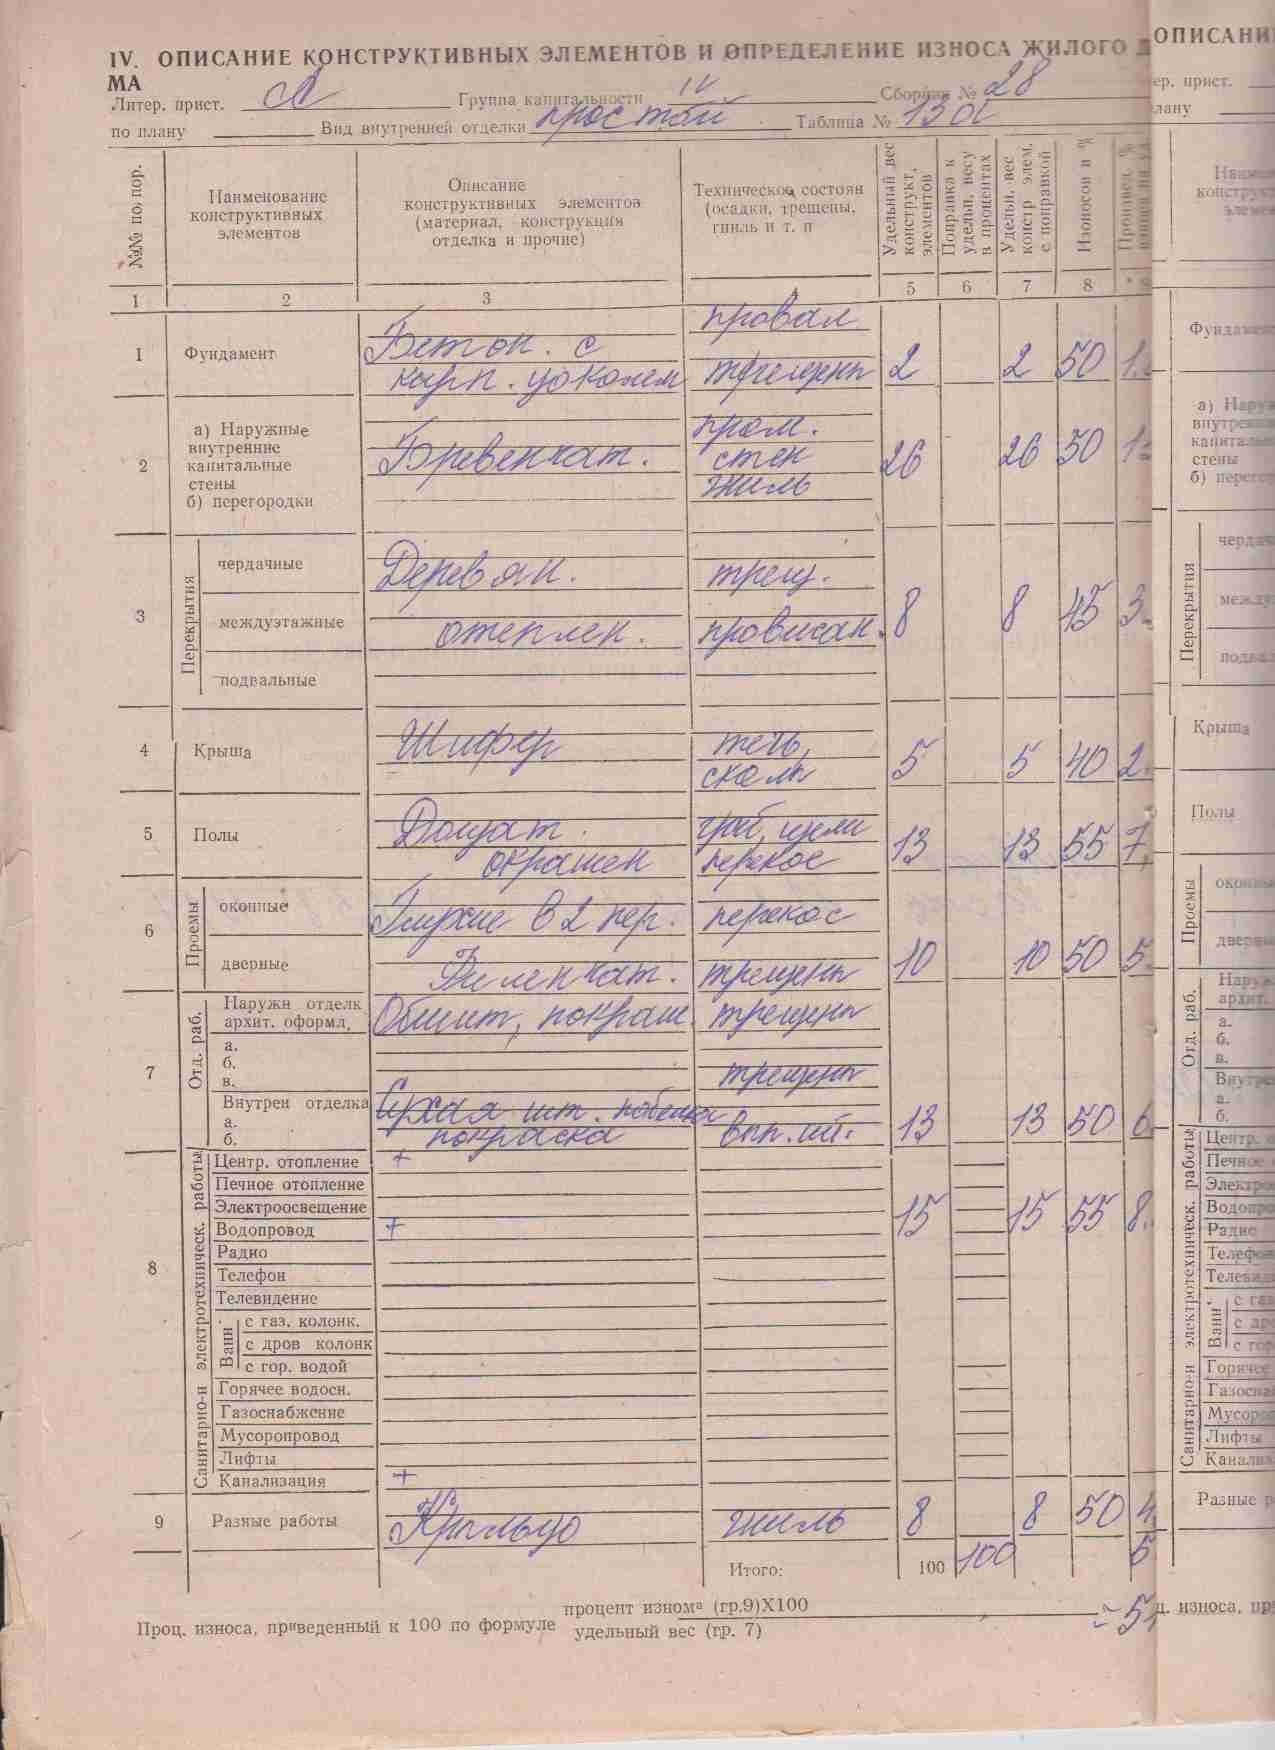 IV. ОПИСАНИЕ КОНСТРУКТИВНЫХ ЭЛЕМЕНТОВ И ОПРЕДЕЛЕНИЕ ИЗНОСА ЖИЛОГО Д
МА
Литер. прист. А Группа капитальности IV Сборник № 28
по плану Вид внутренней отделки простой Таблица № 13
№№ по пор.
Наименование конструктивных элементов
Описание конструктивных элементов (материал, конструкция отделка и прочие)
Техническое состоян (осадки, трещены, гниль и т. п
Удельный вес конструкт, элементов
Поправка к удельн. весу в процентах
Удельн. вес констр элем. с поправкой
Изоносои в %
1 2 3 4 5 6 7 8
провал
1 Фундамент Бетон. с
кирп. цоколем трещены 2 2 50 1.
а) Наружные
внутренние
капитальные
стены
б) перегородки
2 Бревенчат. пром.
стен
гниль 26 26 50 1
3 Перекрытия
чердачные Деревян. трещ.
междуэтажные отеплен. провисан. 8 8 45 3.
подвальные
4 Крыша Шифер течь,
сколы 5 5 40 2.
5 Полы Дощат. щели
окрашен перекос 13 13 55 7,
6 Проемы
оконные Глухие в 2 пер. перекос
дверные Филенчат. трещены 10 10 50 5.
7 Отд. раб.
Наружн отделк
архит. оформл, Обшит, покраш. трещены
а.
б.
в. трещены
Внутрен отделка Сухая шт. побелка
а. покраска 13 13 50 6.
б.
8 Санитарно-и электротехническ. работы
Центр. отопление +
Печное отопление
Электроосвещение 15 15 55 8.
Водопровод +
Радио
Телефон
Телевидение
Ванн.
с газ. колонк.
с дров колонк
с гор. водой
Горячее водосн.
Газоснабжение
Мусоропровод
Лифты
Канализация +
9 Разные работы Крыльцо гниль 8 8 50 4,
Итого: 100 100 5
Проц. износа, приведенный к 100 по формуле процент изнома (гр.9)Х100
удельный вес (гр. 7)
ОПИСАНИ
ер. прист.
лану
Фундамент
а) Наруж
внутренн
капитальн
стены
б) перегор
Перекрытия
чердачн
междуэ
подвал
Крыша
Полы
Проемы
оконны
дверны
Отд. раб.
Наруж
архит.
а.
б.
в.
Внутре
а.
б.
Санитарно-и электротехническ. работы
Центр. о
Печное о
Электро
Водопро
Радио
Телефон
Телевид
Ванн.
с газ
с дро
с гор
Горячее
Газосна
Мусоро
Лифты
Канализ
Разные р
ц. износа, пр